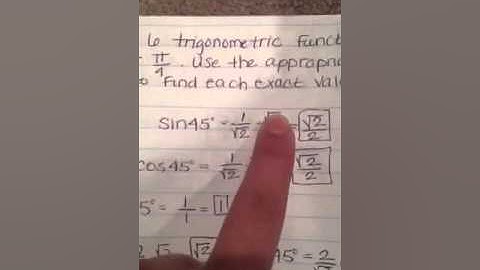 6 trigonometric Func
π/4. Use the appropri
Find each exact val
sin45° = 1/√2 = √2/2
cos45° = 1/√2 √2/2
5° = 1/1 = 1
√2
45° = 2/√